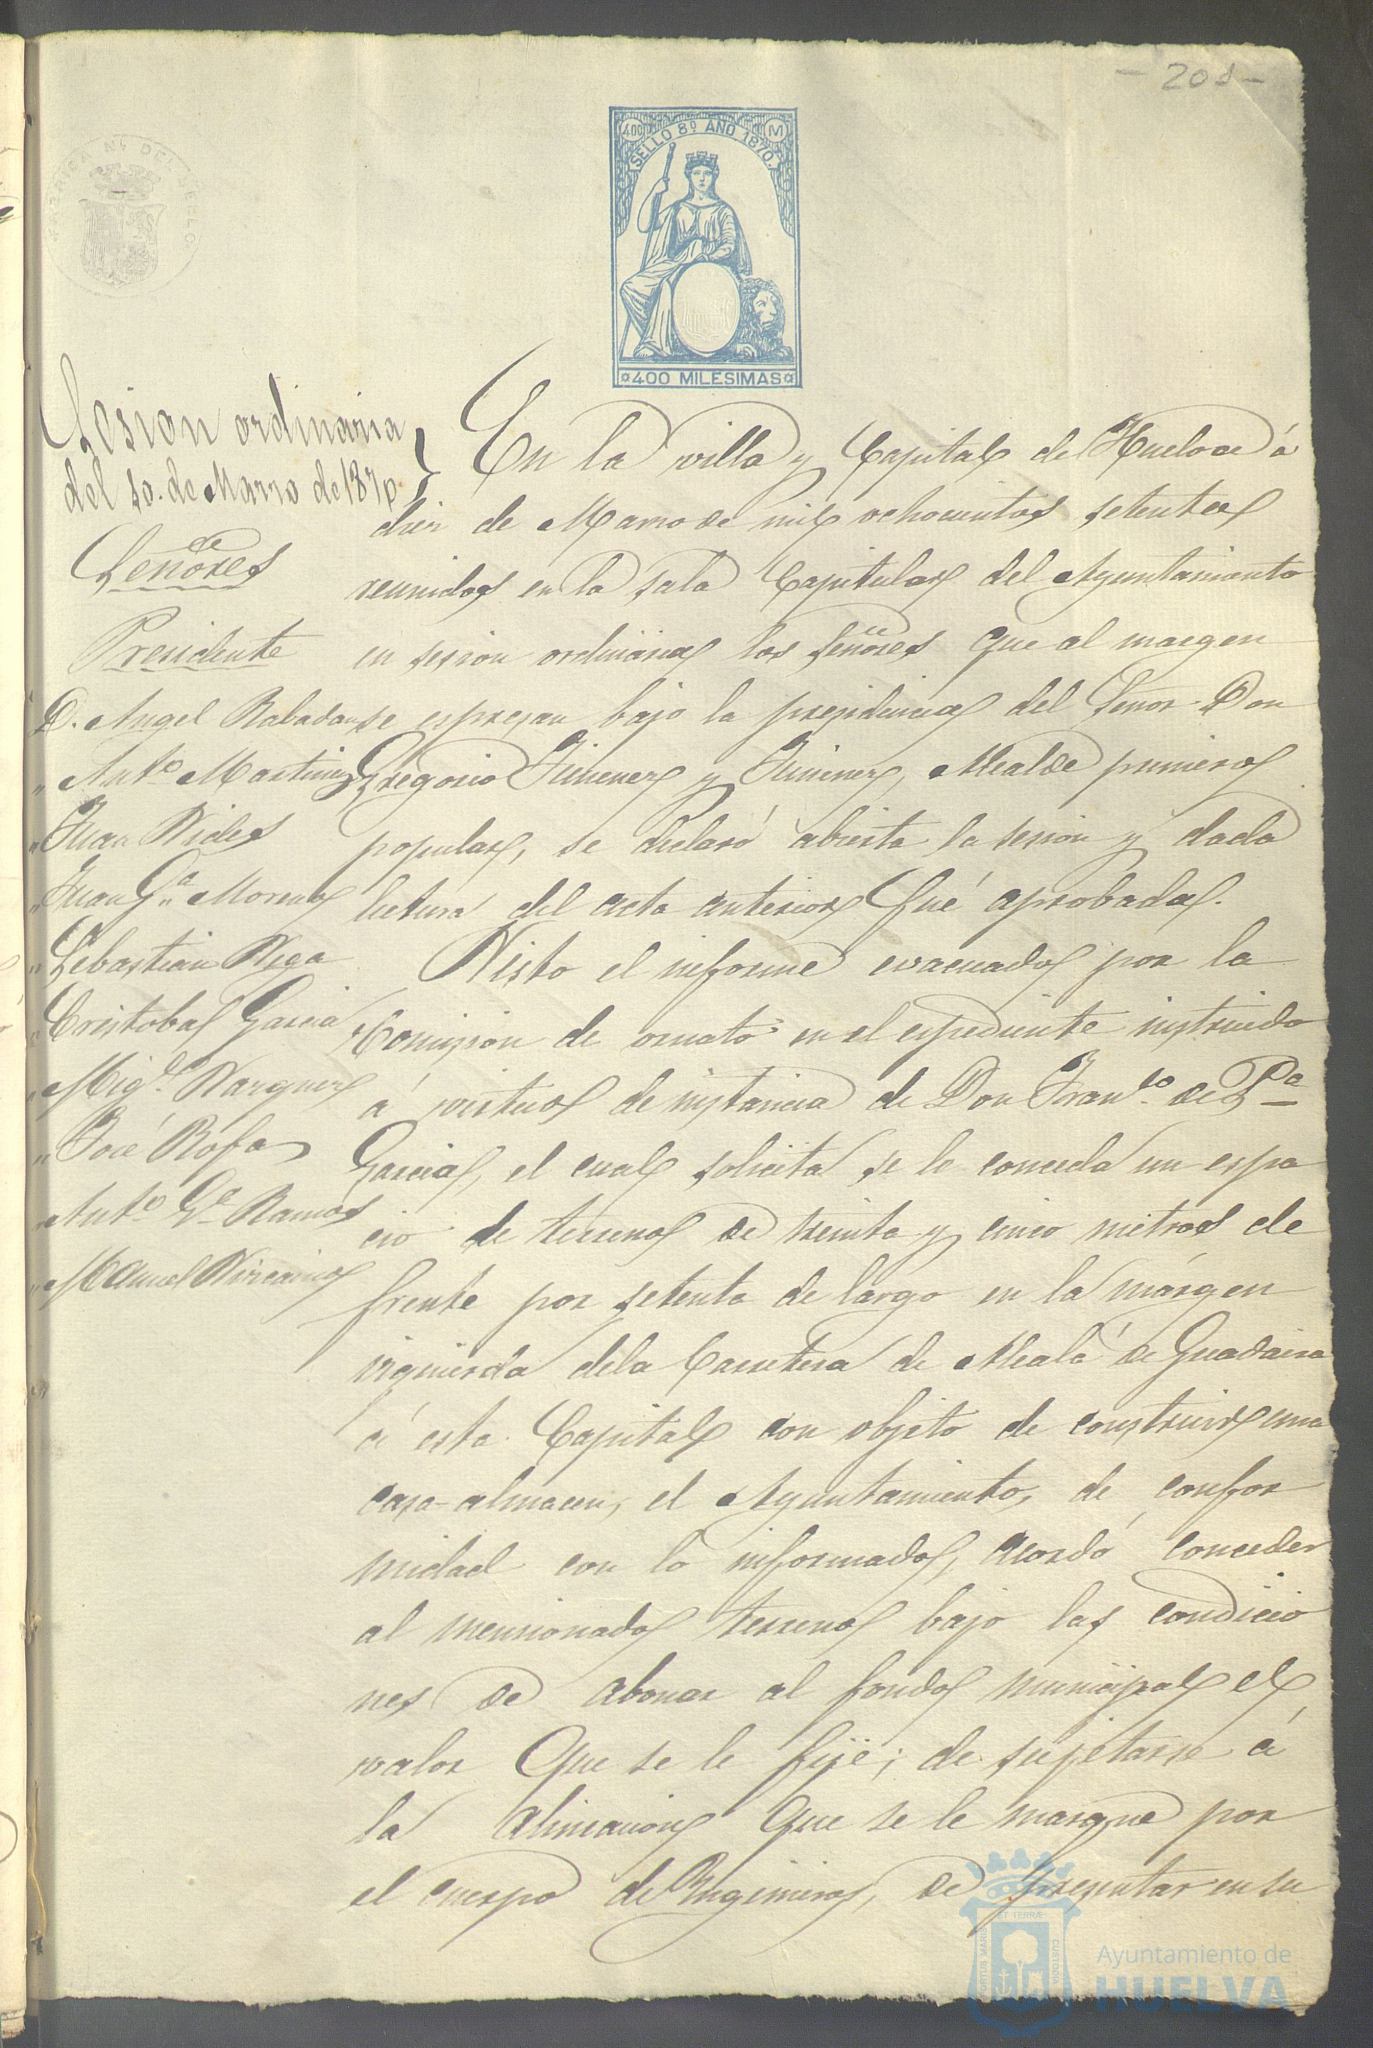 - 208 -
FABRICA N.l DEL SELLO
400 M
SELLO 8º AÑO 1870.
400 MILESIMAS
Sesion ordinaria
del 10. de Marzo de 1870.
Señores de
Presidente
D. Angel Rabadan
" Antº Martinez
" Juan Vides
" Juan Gª Moreno
" Sebastian Vega
" Cristobal Garcia
" Migl. Vazquez
" José Rofa
" Antº Gª Ramos
" Manuel Vizcaino
En la villa y Capital de Huelva á
diez de Marzo de mil ochocientos setenta
reunidos en la sala Capitular del Ayuntamiento
en sesion ordinaria los señores que al margen
se espresan bajo la presidencia del Señor Don
Gregorio Jimenez y Jimenez, Alcalde primero
popular, se declaró abierta la sesion y dada
lectura del acta anterior fué aprobada.
Visto el informe evacuado por la
Comision de ornato en el espediente instruido
á virtud de instancia de Don Franº de Pª
Garcia, el cual solicita se le conceda un espa
cio de terreno de treinta y cinco metros de
frente por setenta de largo en la márgen
izquierda dela Carretera de Alcalá de Guadaira
á esta Capital con objeto de construir una
casa-almacen, el Ayuntamiento, de confor
midad con lo informado, acordó conceder
al mensionado terreno bajo las condicio
nes de abonar al fondo municipal el
valor que se le fije; de sujetarse á
la alineacion que se le marque por
el cuerpo de Ingenieros, de presentar en su
PORTUS MARIS ET TERRÆ CUSTODIA
Ayuntamiento de
HUELVA